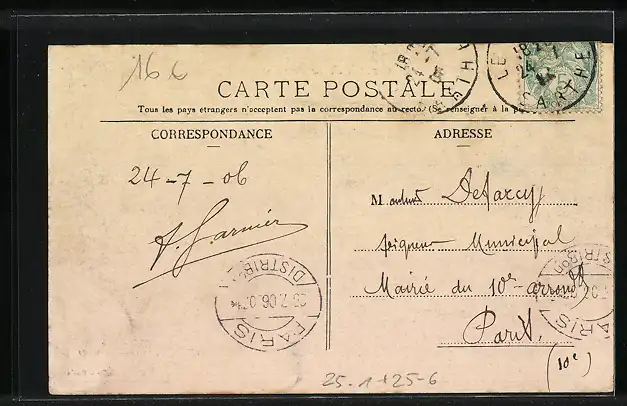 16 c
CARTE POSTALE
Tous les pays étrangers n'acceptent pas la correspondance au recto. (Se renseigner à la
CORRESPONDANCE
ADRESSE
24-7-06
Monsieur Defarcy
Municipal
Mairie du 10e arrondt
Paris.
(10e)
PARIS
DISTRIB
25.7.06
SARTHE
LE
25-1+25-6